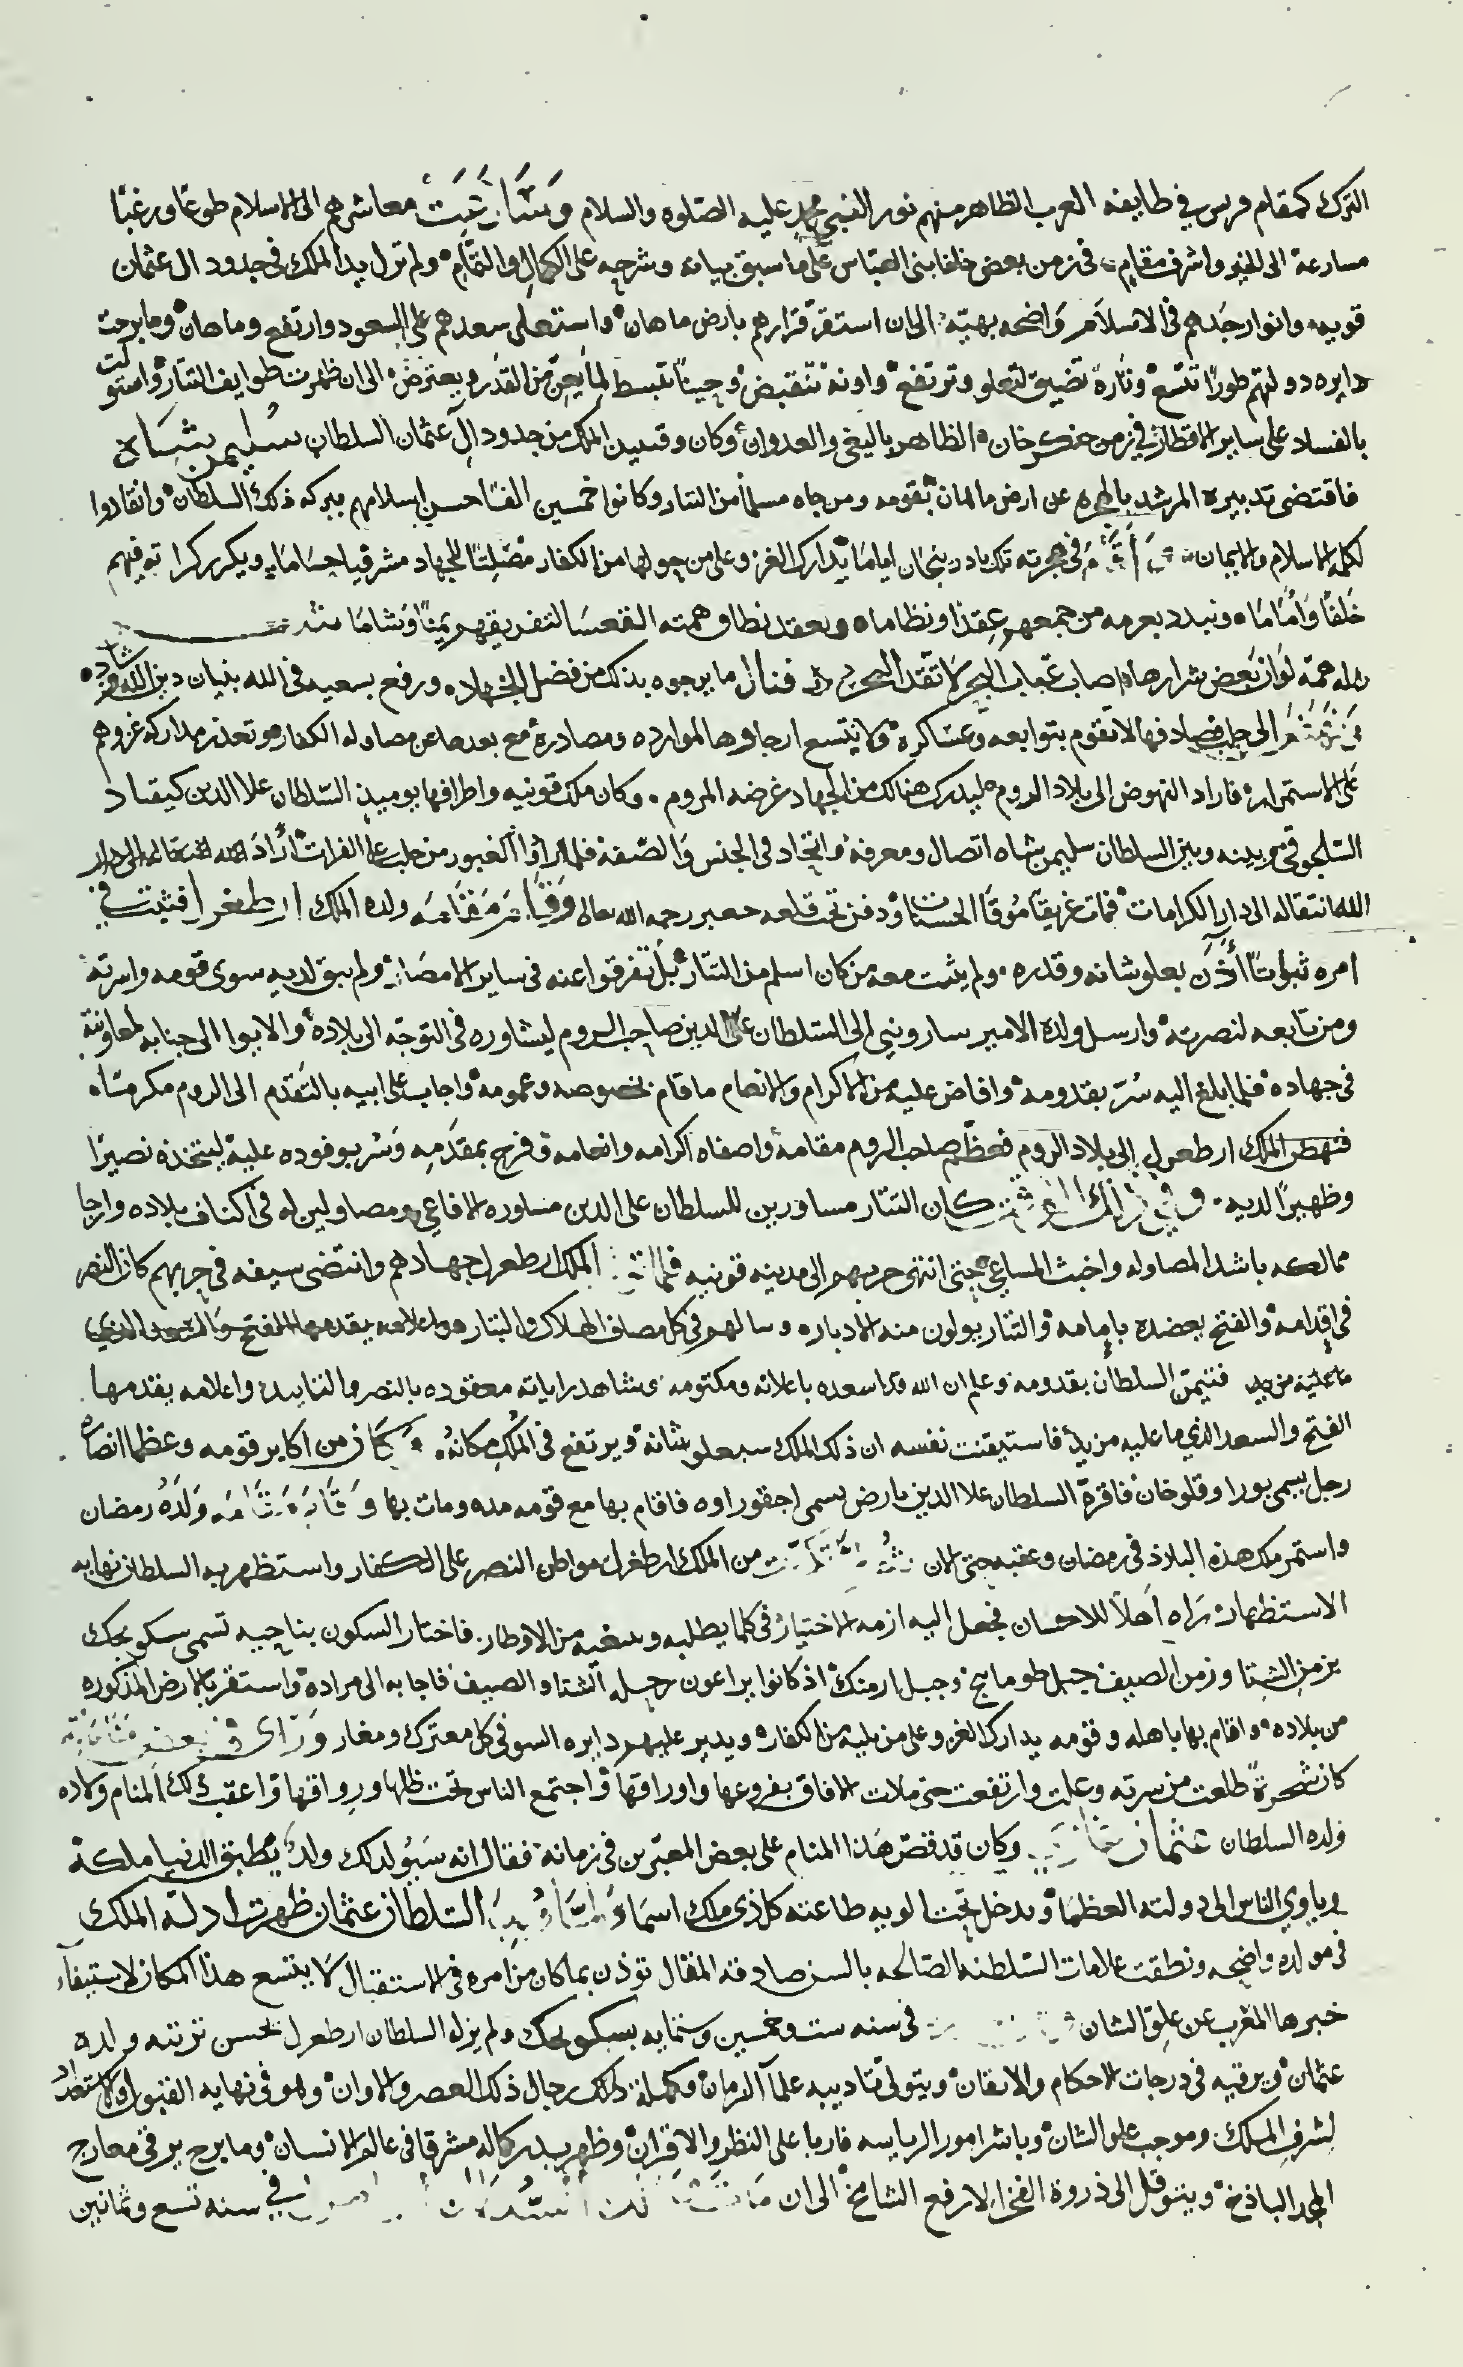 الترك كمقام قريش في طايفة العرب الظاهر منهم نور النبي محمد عليه الصلوة والسلام معاشرهم الى الاسلام طوعا ورغبا
مسارعة الى الخير واشرف مقام في زمن بعض خلفا بني العباس على ما سبق بيانه وشرحه على الكمال والتمام ولم تزل يد الملك في جدود ال عثمان
قويه وانوار جدهم في الاسلام واضحه بهيه الى ان استقر قرارهم بارض ماهان واستعلى سعدهم على السعود وارتفع وما هان وما برحت
دايره دولتهم طورا تتسع وتارة تضيق لتعلو وترتفع واونة تنقبض وحينا تنبسط لما يعن من القدر ويعترض الى ان ظهرت طوايف التتار واستولت
بالفساد على ساير الاقطار في زمن جنكز خان الظاهر بالبغي والعدوان وكان وقتيذ الملك من جدود آل عثمان السلطان سليمن شاه
فاقتضى تدبيره المرشد بالهجره عن ارض ماهان بقومه ومن جاه مسلما من التتار وكانوا خمسين الفا حسن اسلامهم ببركه ذلك السلطان وانقادوا
لكلمة الاسلام والايمان في هجرته تلك باذربنجان اياما يدارك الغزو على من حولها من الكفار مصلتا للجهاد مشرفيا حساما ويكرر كرا توفيهم
خلفا واماما ويبدد بعزمه من جمعهم عقدا ونظاما ويعقد نطاق همته القعسا لتفريقهم يمنا وشاما
وله همة لو ان بعض شرارها اصاب عباب البحر لاتقد البحر فنال ما يرجوه بذلك من فضل الجهاد ورفع بسعيه في الله بنيان دين الله وشاده
الى حلب فصادفها لا تقوم بتوابعه وعساكره ولا يتسع ارجاوها لموارده ومصادره مع بعدها عن مصاوله الكفار وتعذر مداركه غزوهم
على الاستمرار فاراد النهوض الى بلاد الروم ليدرك هنالك من الجهاد غرضه المروم وكان ملك قونيه واطرافها يوميذ السلطان علا الدين كيقباد
السلجوقي وبينه وبين السلطان سليمن شاه اتصال ومعرفه واتحاد في الجنس والصفه فلما ارادوا العبور من حلب على الفرات اراد الله
الله انتقاله الى دار الكرامات فمات غريقا موفا الحسنات ودفن تحت قلعه جعبر رحمه الله تعالى وقام مقامه ولده الملك ارطغرل فثبت في
امره ثبوتا اذن بعلو شانه وقدره ولم يثبت معه من كان اسلم من التتار بل تفرقوا عنه في ساير الامصار ولم يبق لديه سوى قومه واسرته
ومن تابعه لنصرته وارسل ولده الامير ساروبني الى السلطان علا الدين صاحب الروم ليشاوره في التوجه الى بلاده والايوا الى جنابه لمعاونته
في جهاده فلما بلغ اليه سر بقدومه وافاض عليه من الاكرام والانعام ما قام بخصوصه وعمومه واجاب على ابيه بالتقدم الى الروم مكرمًا
فنهض الملك ارطغرل الى بلاد الروم فعظم صاحب الروم مقامه واصفاه اكرامه وانعامه وفرح بمقدمه وسر بوفوده عليه ليتخذه نصيرا
وظهيرا لديه وفي ذلك الوقت كان التتار مساورين للسلطان علا الدين مساوره الافاعي ومصاولين له في اكناف بلاده وارجا
ممالكه باشد المصاوله واخبث المساعي حتى انتهى حربهم الى مدينه قونيه فلما الملك ارطغرل جهادهم وانتضى سيفه في حربهم كان النصر
في اقدامه والفتح بعضده بامامه والتتار يولون منه الادبار وسالهم في كل مصاف الهلاك والتبار
فتيمن السلطان بقدومه وعلم ان الله قد اسعده باعلانه ومكتومه وشاهد راياته معقوده بالنصر والتاييد واعلامه يقدمها
الفتح والسعد الذي ما عليه من يد فاستيقنت نفسه ان ذلك الملك سيعلو شانه ويرتفع في الملك مكانه وكان من اكابر قومه وعظما انصاره
رجل يسمى بوراوقلوخان فاقره السلطان علا الدين بارض يسمى اجقوراوه فاقام بها مع قومه مده ومات بها وقام مقامه ولده رمضان
واستمر ملك هذه البلاد في رمضان وعقبه حتى الان من الملك ارطغرل مواطن النصر على الكفار واستظهر به السلطان نهايه
الاستظهار وراه اهلا للاحسان فجعل اليه ازمه الاختيار في كلما يطلبه ويبتغيه من الاوطار فاختار السكون بناحيه تسمى سكوجك
بزمن الشتا وزمن الصيف جبل طومانج وجبل ارمنك اذ كانوا يراعون رحله الشتا والصيف فاجابه الى مراده واستقر بالارض المذكوره
من بلاده واقام بها باهله وقومه يدارك الغزو على من يليه من الكفار ويدير عليهم دايره السو في كل معترك ومغار وراى في بعض
كان شجرة طلعت من سرته وعلت وارتفعت حتى ملات الافاق بفروعها واوراقها واجتمع الناس تحت ظلها ورواقها واعقب ذلك المنام ولاده
ولده السلطان عثمان خان وكان قد قص هذا المنام على بعض المعبرين في زمانه فقال انه سيولد لك ولد يطبق الدنيا ملكه
وياوي الناس الى دولته العظما ويدخل تحت الويه طاعته كل ذي ملك اسما السلطان عثمان ظهرت ادلة الملك
في مولده واضحه ونطقت علامات السلطنه الصالحه بالسن صادقه المقال توذن بما كان من امره في الاستقبال لا يتسع هذا المكان لاستيفاء
خبرها المغرب عن علو الشان في سنه ست وخمسين وستمايه بسكوجك ولم يزل السلطان ارطغرل يحسن تربته ولده
عثمان ويرقيه في درجات الاحكام والاتقان ويتولى تاديبه علما الزمان وكملة ذلك رجال ذلك العصر والاوان وهو في نهايه القبول والاستعداد
لشرف الملك وموجب علو الشان وباشر امور الرياسه فاربا على النظر والاقران وظهر بدر كماله مشرقا في عالم الانسان وما برح يرقى معارج
المجد الباذخ ويتوقل الى ذروة الفخر الارفع الشامخ الى ان في سنه تسع وثمانين